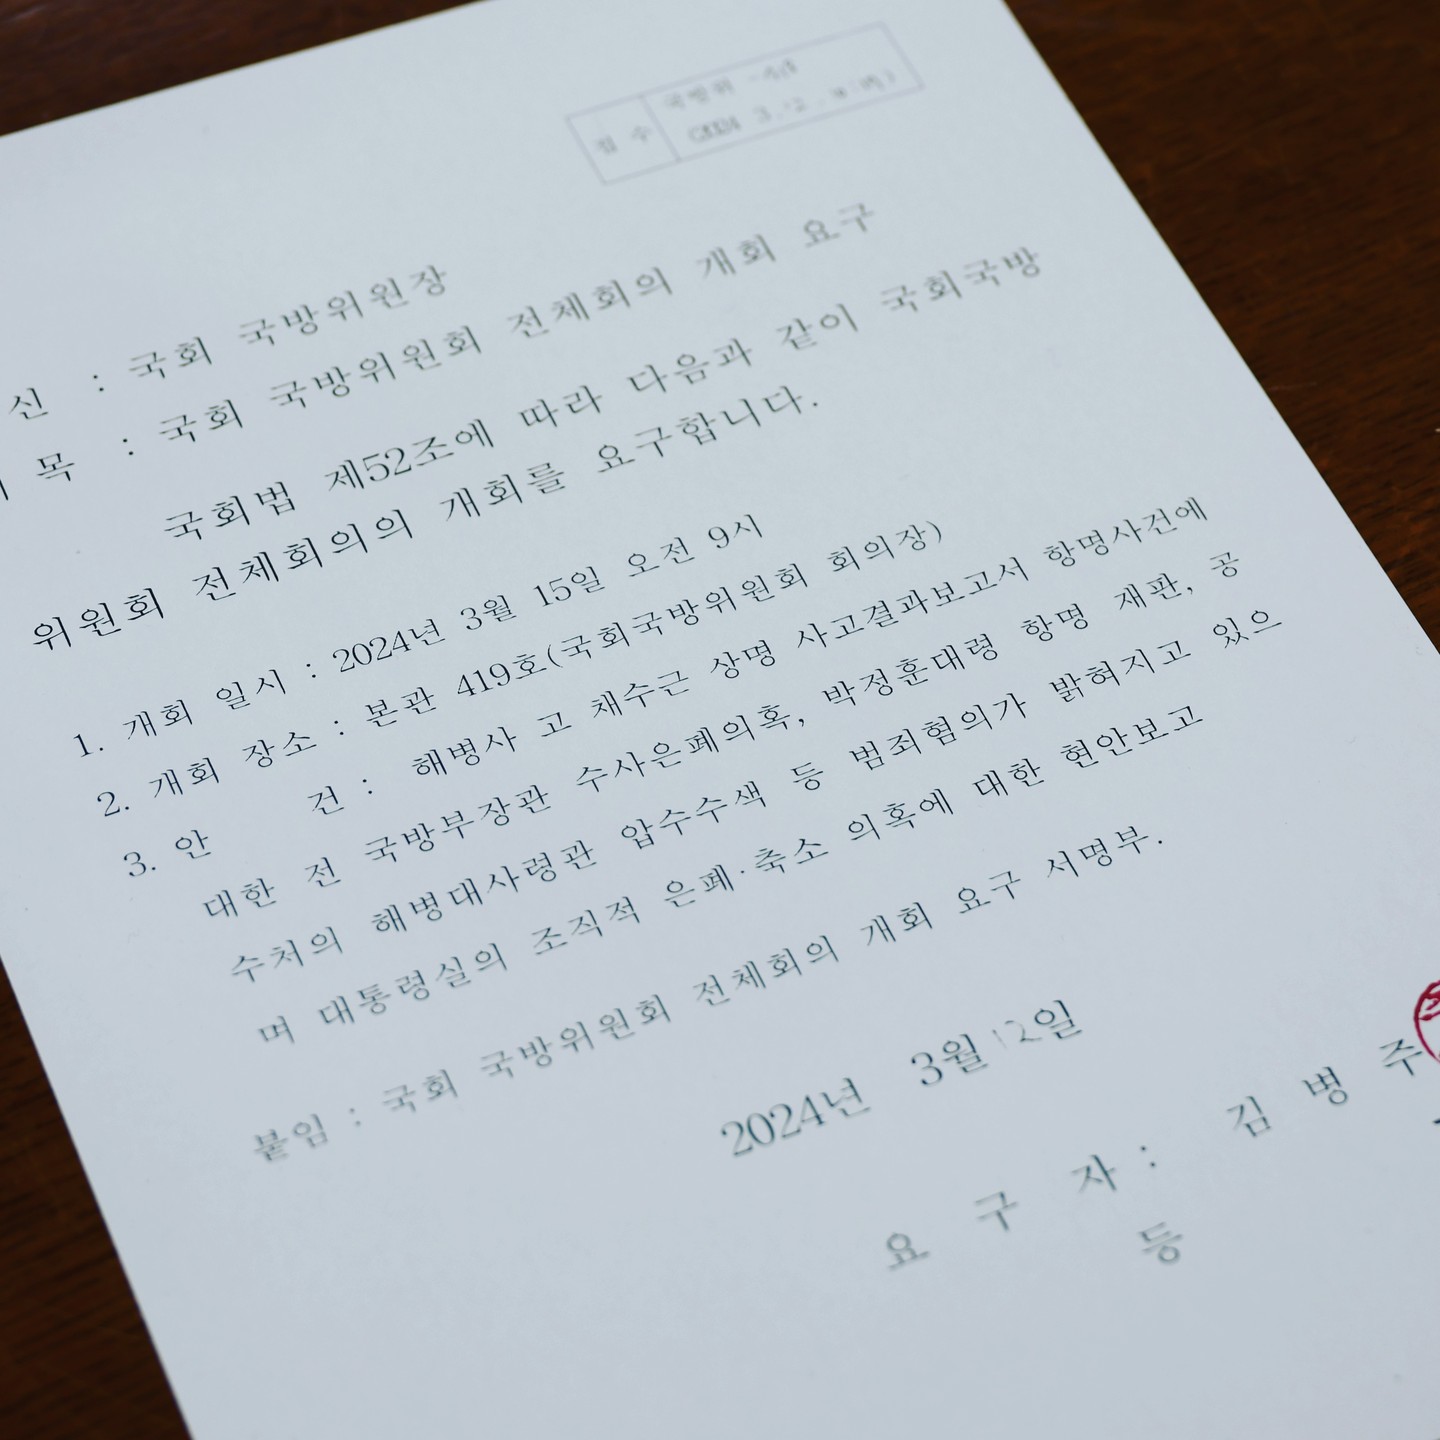 접 수 국방위
신 : 국회 국방위원장
목 : 국회 국방위원회 전체회의 개회 요구
국회법 제52조에 따라 다음과 같이 국회국방
위원회 전체회의의 개회를 요구합니다.
1. 개회 일시 : 2024년 3월 15일 오전 9시
2. 개회 장소 : 본관 419호(국회국방위원회 회의장)
3. 안 건 : 해병사 고 채수근 상명 사고결과보고서 항명사건에
대한 전 국방부장관 수사은폐의혹, 박정훈대령 항명 재판, 공
수처의 해병대사령관 압수수색 등 범죄혐의가 밝혀지고 있으
며 대통령실의 조직적 은폐·축소 의혹에 대한 현안보고
붙임 : 국회 국방위원회 전체회의 개회 요구 서명부.
2024년 3월 12일
요 구 자 : 김 병 주
등